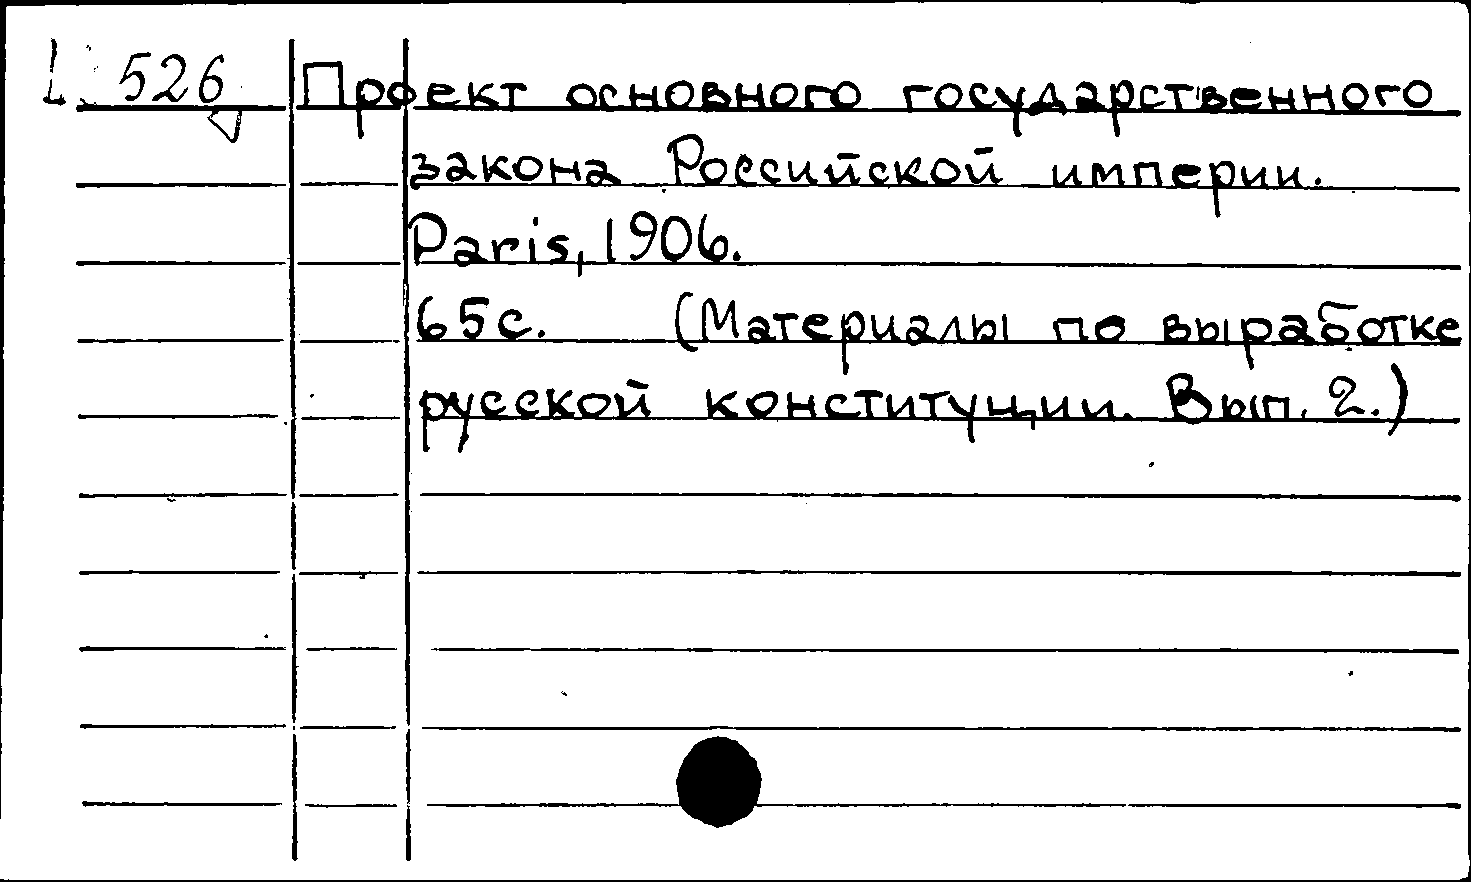 L. 526 Проект основного государственного
закона Российской империи.
Paris, 1906.
65с. (Материалы по выработке
русской конституции. Вып. 2.)